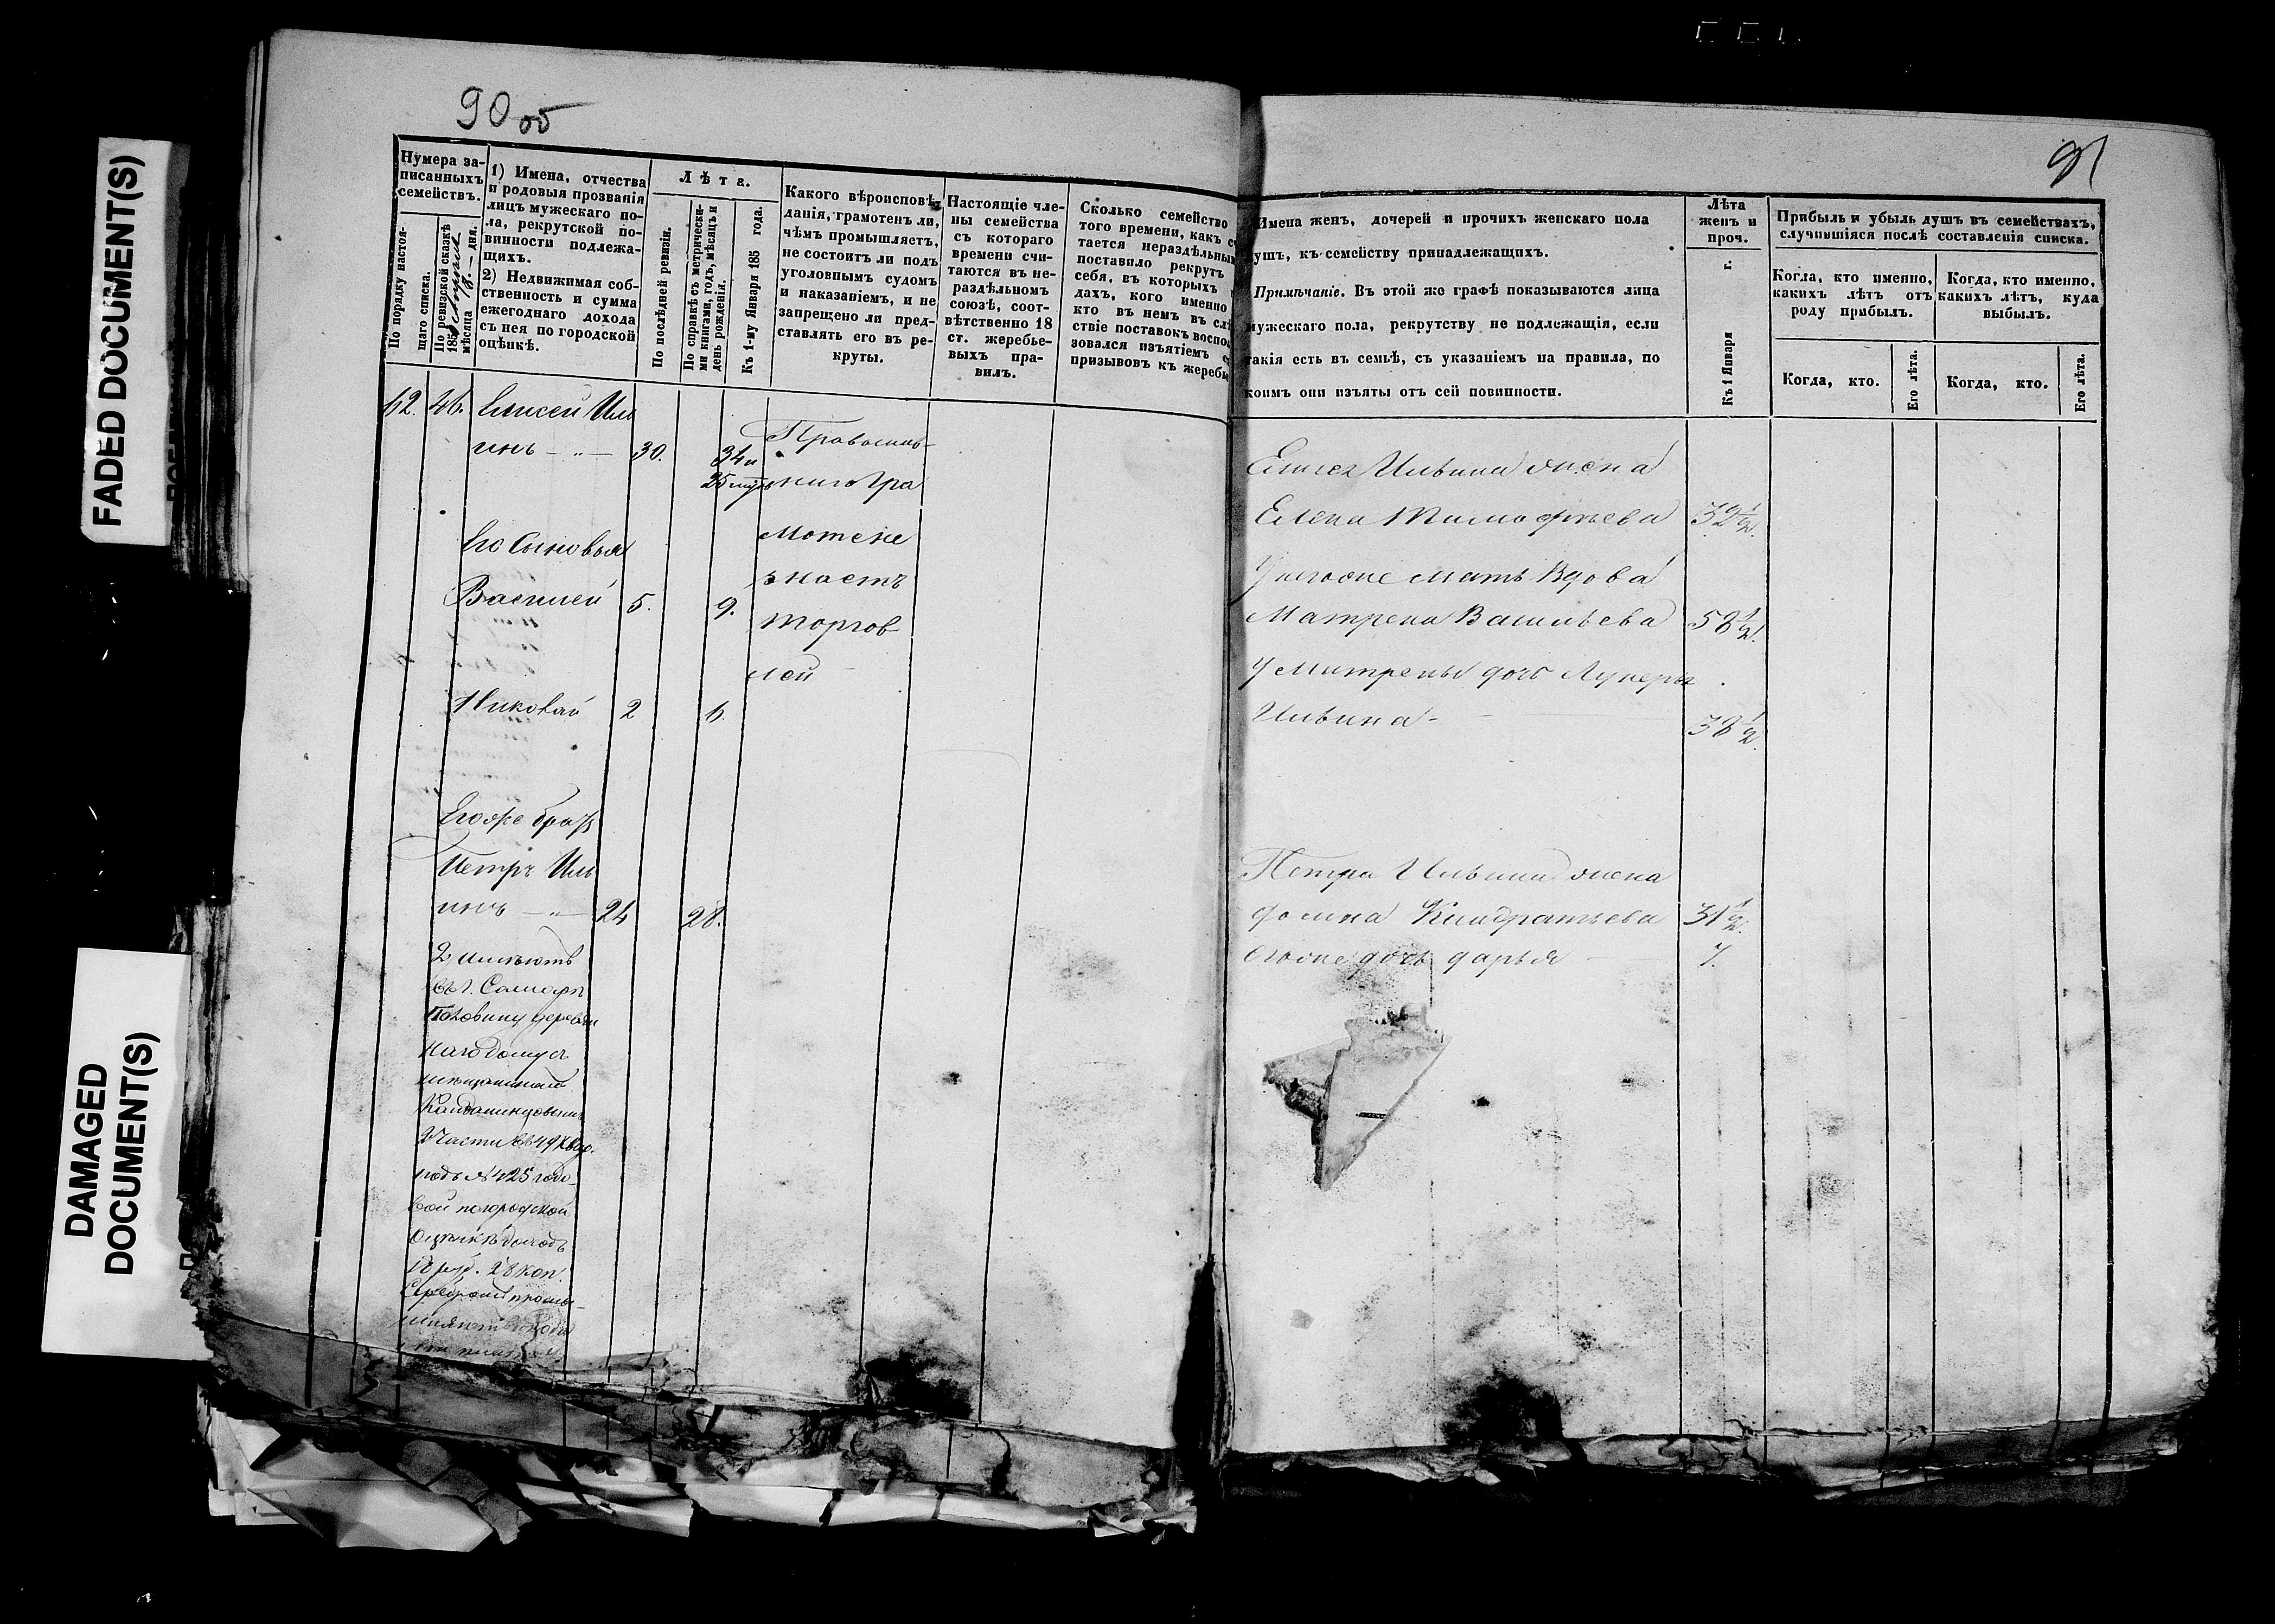 FADED DOCUMENT(S)
DAMAGED
DOCUMENT(S)
90 об
Нумера за-
писанныхъ
семействъ.
По порядку настоя-
щаго списка.
По ревизской сказкѣ
185
мѣсяца 18 дня.
1) Имена, отчества
и родовыя прозванія
лицъ мужескаго по-
ла, рекрутской по-
винности подлежа-
щихъ.
2) Недвижимая соб-
ственность и сумма
ежегоднаго дохода
съ нея по городской
оцѣнкѣ.
Лѣта.
По послѣдней ревизіи.
По справкѣ съ метрически-
ми книгами, годъ, мѣсяцъ и
день рожденія.
Къ 1-му Января 185 года.
Какого вѣроисповѣ-
данія, грамотенъ ли,
чѣмъ промышляетъ,
не состоитъ ли подъ
уголовнымъ судомъ
и наказаніемъ, и не
запрещено ли пред-
ставлять его въ ре-
круты.
Настоящіе чле-
ны семейства
съ котораго
времени счи-
таются въ не-
раздѣльномъ
союзѣ, соот-
вѣтственно 18
ст. жеребье-
выхъ пра-
вилъ.
Сколько семейство
того времени, какъ
тается нераздѣльным
поставило рекрутъ
себя, въ которыхъ
дахъ, кого именно
кто въ немъ въ слѣ
ствіе поставокъ воспо
зовался изъятіемъ
призывовъ къ жереб
62. 46. Елисей Иль
инъ — „ — 30. 34 и
Православ-
наго Гра
моте не
знаетъ
торгов-
лей
Его сыновья
Василей 5. 9.
Николай 2 6.
Его же братъ
Петръ Иль
инъ — „ — 24 28.
2 имѣютъ
въ г. Самарѣ
Половину деревян
наго дому съ
2 Части въ 49 Квар.
подъ № 425 годо-
вой по городской
Оцѣнкѣ доходъ
18 руб. 28 коп.
Серебромъ
91
Имена женъ, дочерей и прочихъ женскаго пола
душъ, къ семейству принадлежащихъ.
Примѣчаніе. Въ этой же графѣ показываются лица
мужескаго пола, рекрутству не подлежащія, если
такія есть въ семьѣ, съ указаніемъ на правила, по
коимъ они изъяты отъ сей повинности.
Лѣта
женъ и
проч.
Къ 1 Января г.
Прибыль и убыль душъ въ семействахъ,
случившіяся послѣ составленія списка.
Когда, кто именно,
какихъ лѣтъ отъ
роду прибылъ.
Когда, кто именно,
какихъ лѣтъ, куда
выбылъ.
Когда, кто.
Его лѣта.
Когда, кто.
Его лѣта.
Елисея Ильина жена
Елена Тимофѣева 32½.
У него же мать Вдова
Матрена Васильева 58½.
У Матрены дочь Лукерья
Ильина - 38½.
Петра Ильина жена
Фомина Киндратьева 31½.
его же дочь дарья 7.